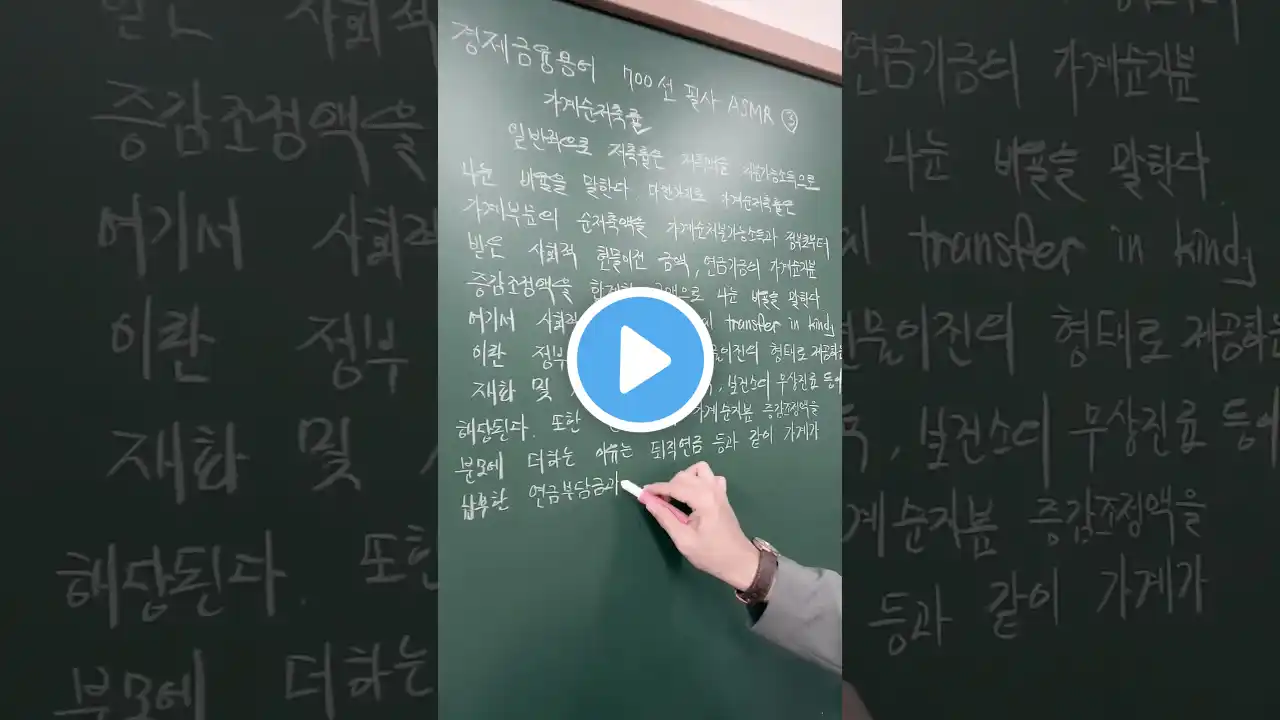 경제금융용어 700선 필사 ASMR ③
가계순저축률
일반적으로 저축률은 저축액을 처분가능소득으로
나눈 비율을 말한다. 마찬가지로 가계순저축률은
가계부문의 순저축액을 가계순처분가능소득과 정부로부터
받은 사회적 현물이전 금액, 연금기금의 가계순지분
증감조정액을 금액으로 나눈 비율을 말한다
여기서 사회적 transfer in kind
이란 정부 현물이전의 형태로 제공하는
재화 및 보건소의 무상진료 등이
해당된다. 또한 가계순지분 증감조정액을
분모에 더하는 이유는 퇴직연금 등과 같이 가계가
납부한 연금부담금과